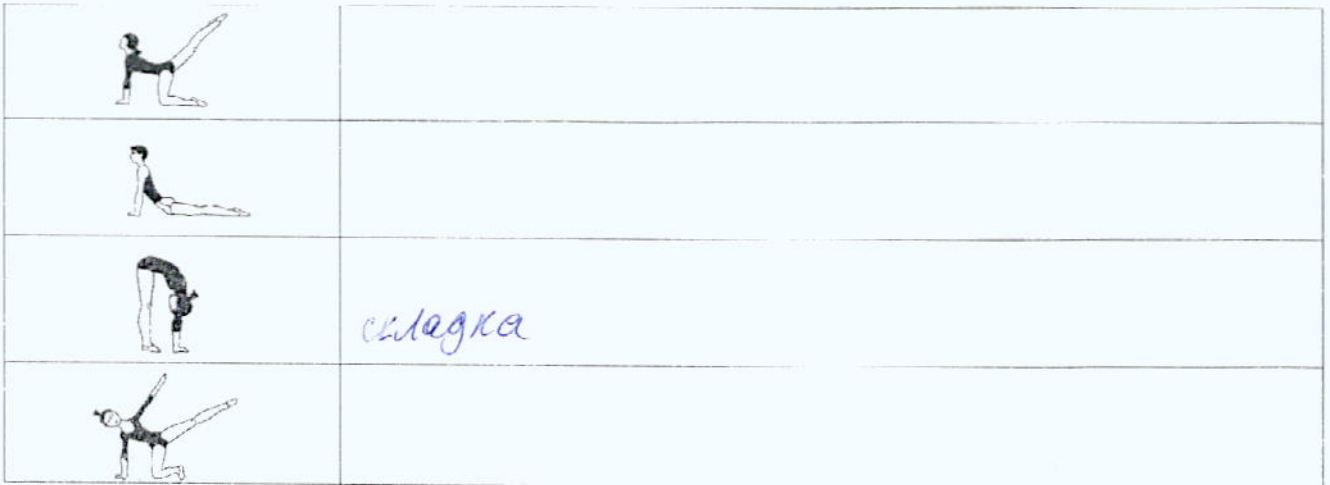 складка